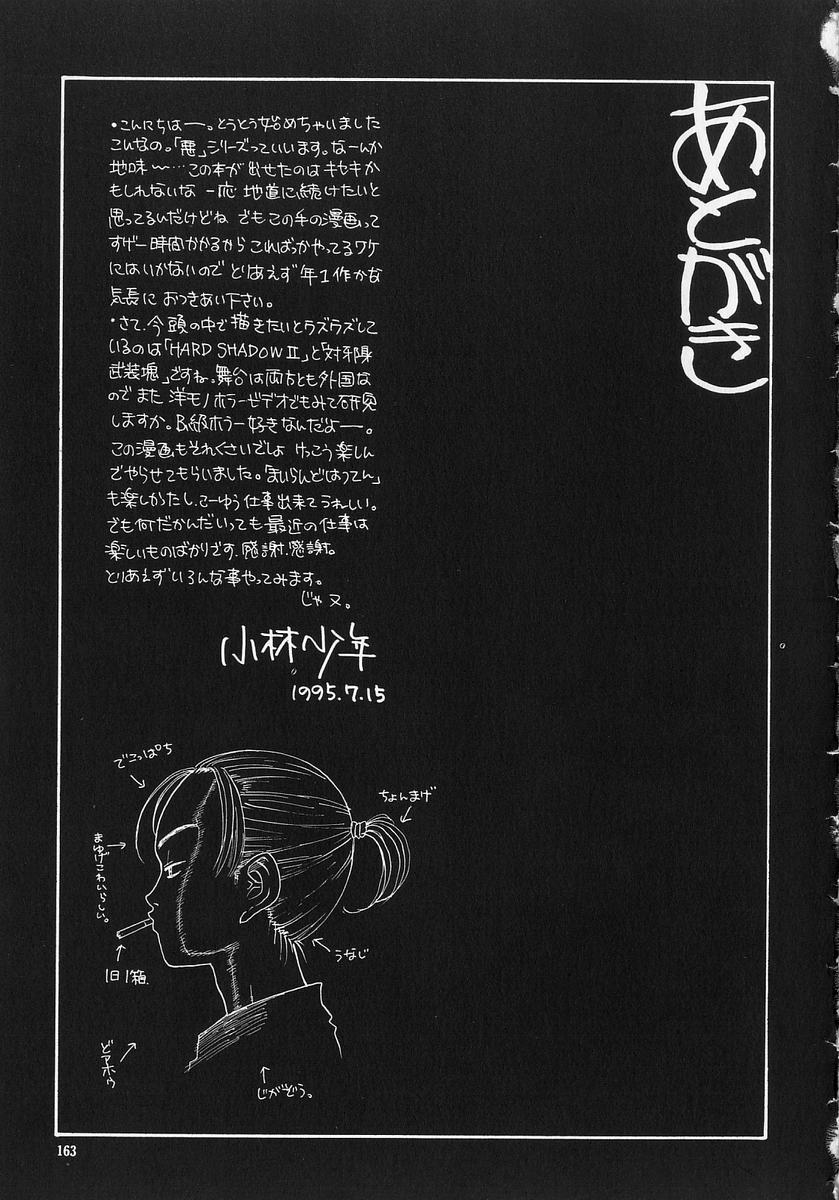 あとがき
・こんにちはー。とうとう始めちゃいました
こんなの。「悪」シリーズっていいます。なーんか
地味〜…この本が出せたのはキセキか
もしれないな 一応 地道に続けたいと
思ってるんだけどね でもこの手の漫画って
すげー時間かかるから こればっかやってるワケ
にはいかないので とりあえず年1作かな
気長に おつきあい下さい。
・さて、今頭の中で描きたいとウズウズして
いるのは「HARD SHADOW II」と「対邪鬼
武装堀」ですね。舞台は両方とも外国な
のでまた 洋モノホラービデオでもみて研究
しますか。B級ホラー好きなんだよー。
この漫画もそれくさいでしょ けっこう楽しん
でやらせてもらいました。「まいらんどはってん」
も楽しかたし、こーゆう仕事出来てうれしい。
でも何だかんだいっても最近の仕事は
楽しいものばかりです。感謝.感謝。
とりあえずいろんな事やってみます。
じゃ又。
小林少年
1995.7.15
でこっぱち
ちょんまげ
まゆげこわいらしい。
1日1箱.
うなじ
どアホゥ
じがぞう。
163